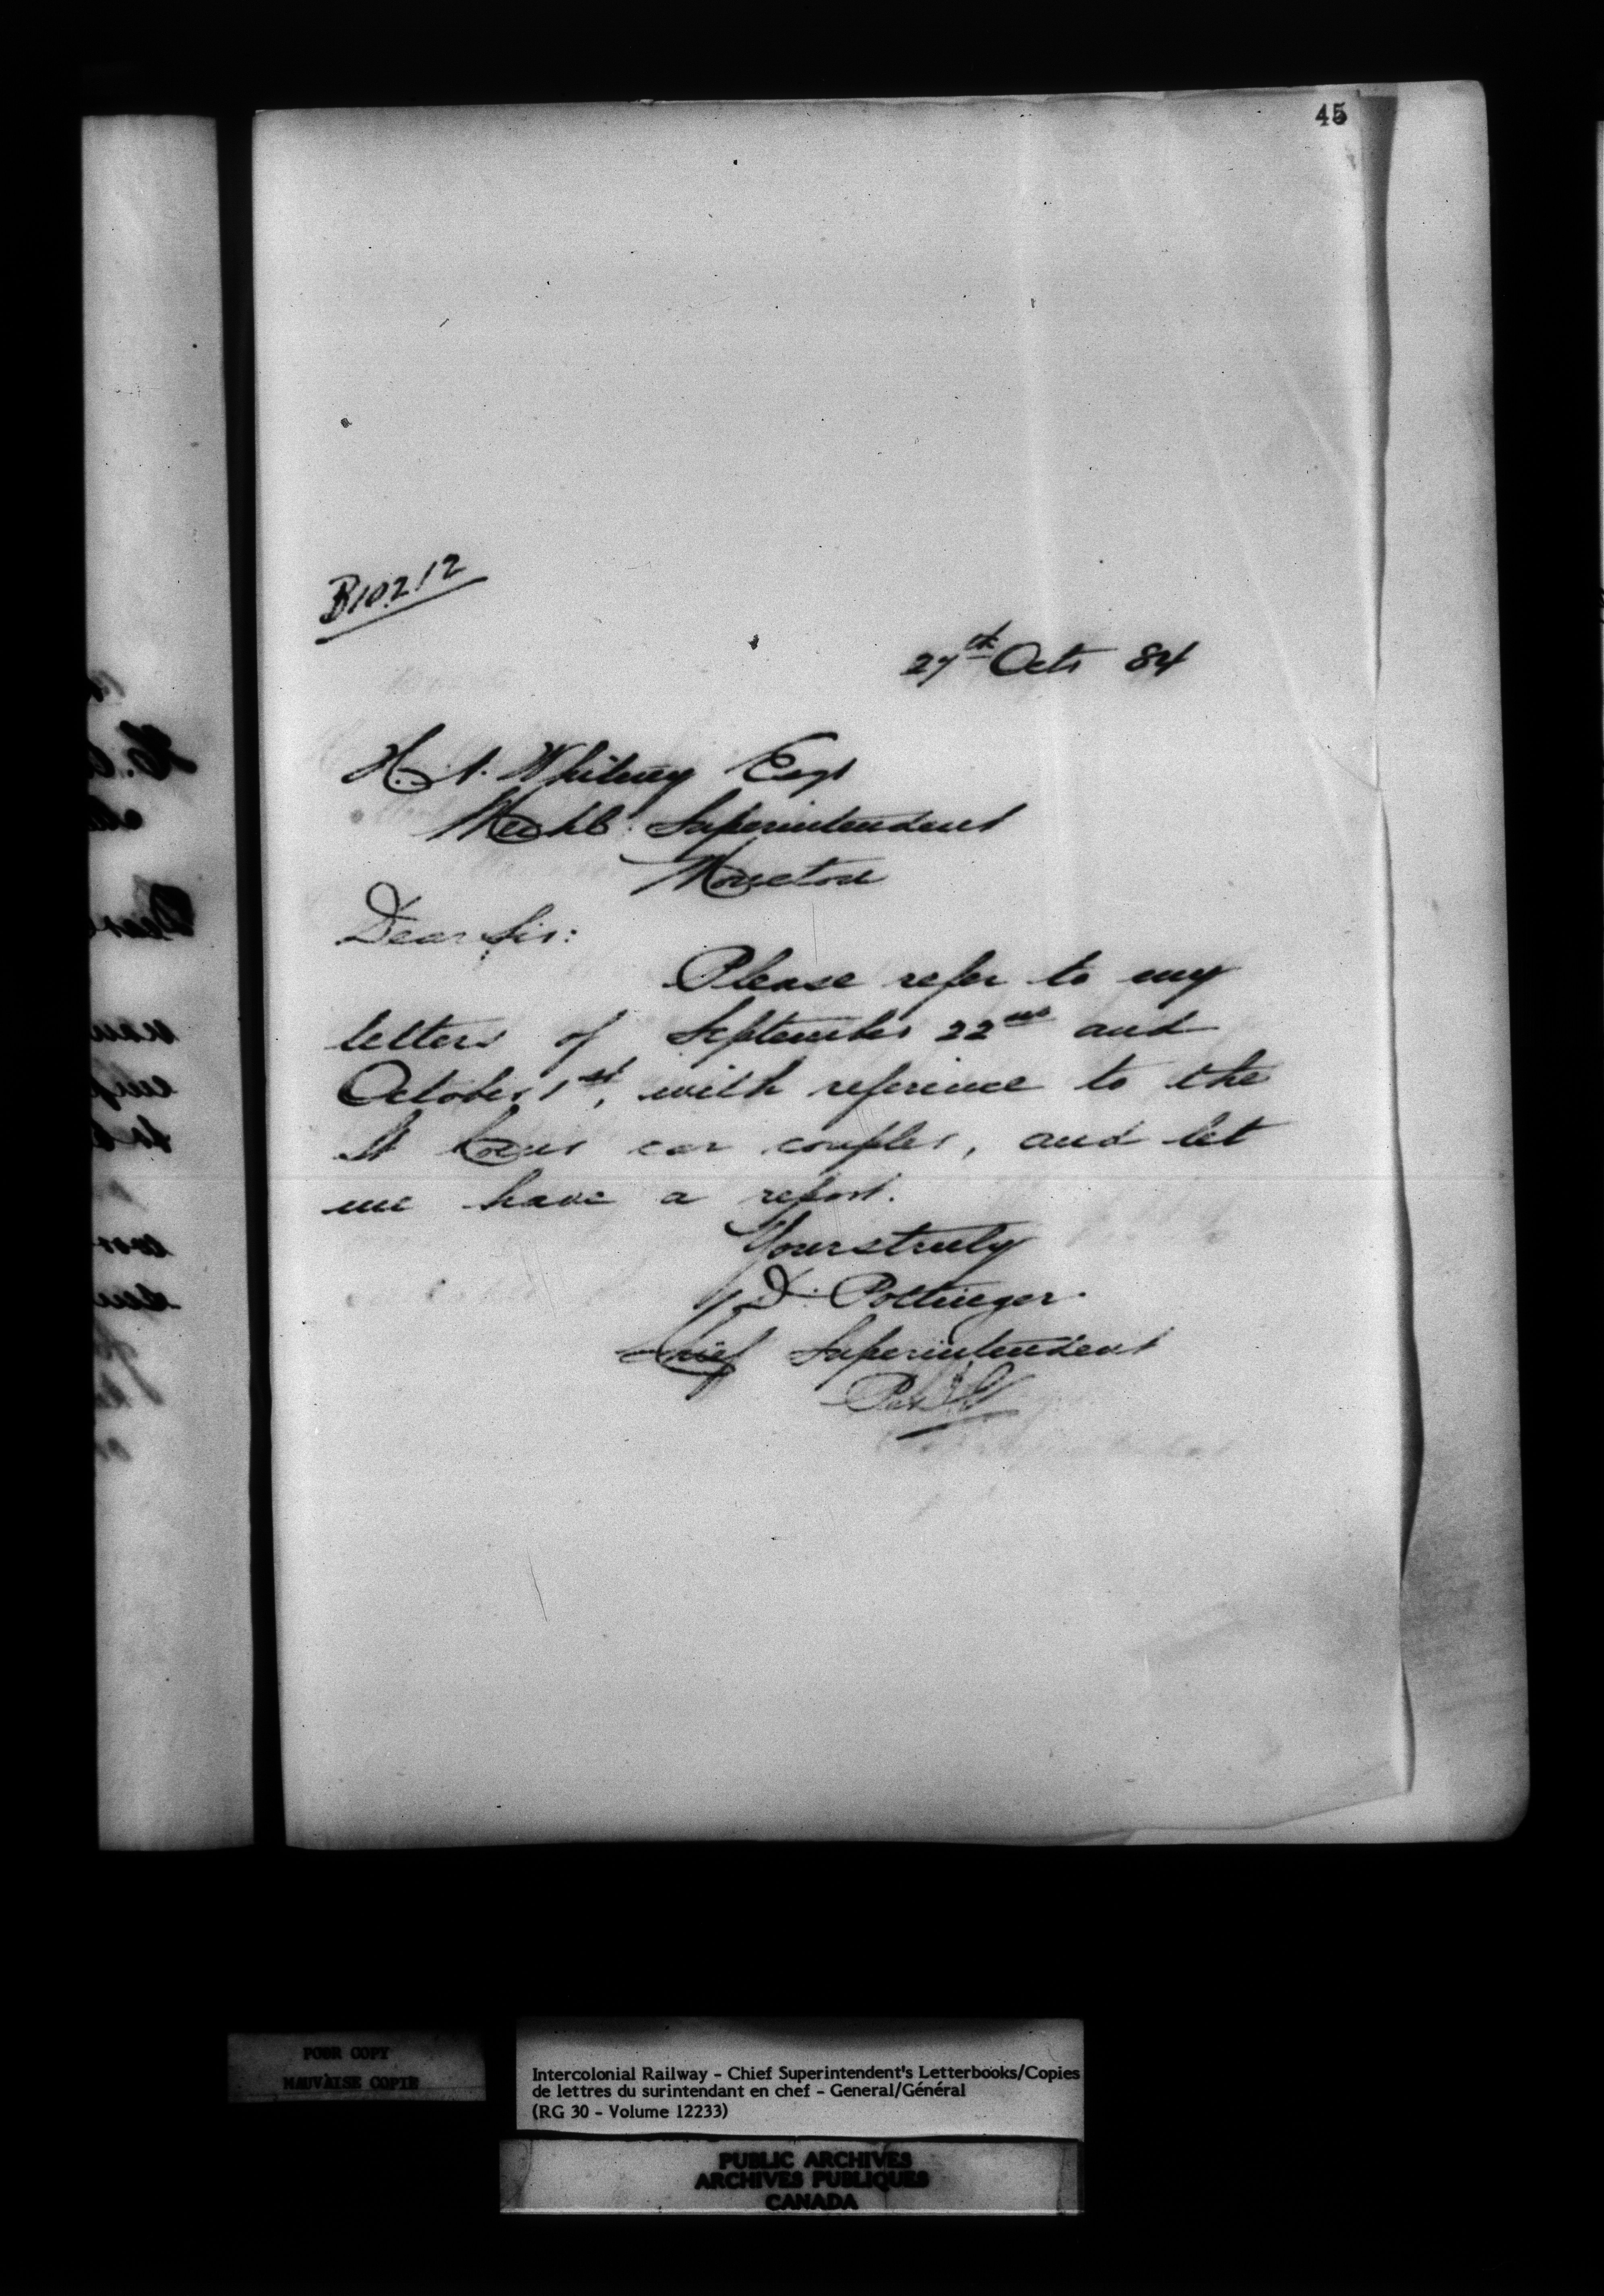 45
B10212
27th Octr 84
H. A. Whitney Esqr
Mechl. Superintendent
Moncton
Dear Sir:
Please refer to my
letters of September 22nd and
October 1st, with reference to the
car coupler, and let
me have a report.
Yours truly
D. Pottinger.
Chief Superintendent
Per
POOR COPY
MAUVAISE COPIE
Intercolonial Railway - Chief Superintendent's Letterbooks/Copies
de lettres du surintendant en chef - General/Général
(RG 30 - Volume 12233)
PUBLIC ARCHIVES
ARCHIVES PUBLIQUES
CANADA